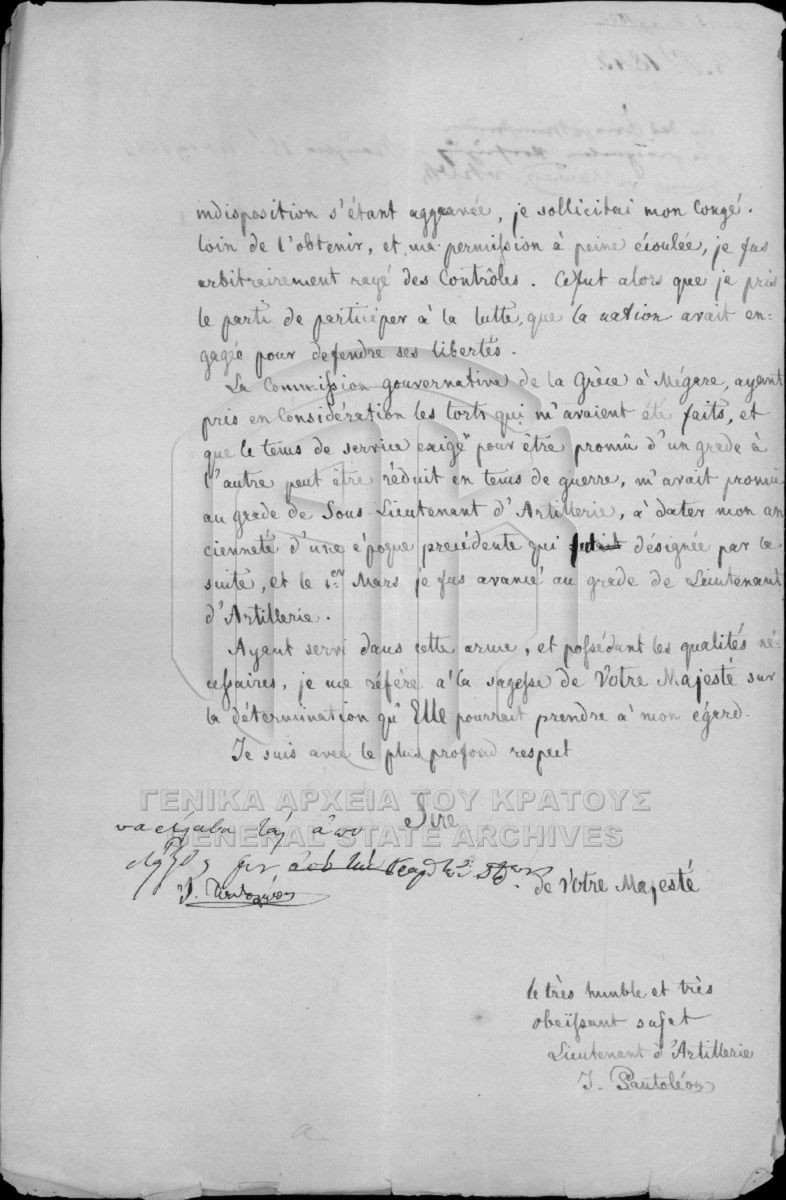 indisposition s'étant aggravée, je sollicitai mon Congé.
loin de l'obtenir, et ma permission à peine écoulée, je fus
arbitrairement rayé des Contrôles. Cefut alors que je pris
le parti de participer à la lutte, que la nation avait en-
gagée pour defendre ses libertés.
La Commission gouvernative de la Grèce à Mégare, ayant
pris en Considération les torts qui m'avaient été faits, et
que le tems de service exigé pour être promû d'un grade à
l'autre peut être réduit en tems de guerre, m'avait promu
au grade de Sous Lieutenant d'Artillerie, à dater mon an
cienneté d'une époque precédente qui désignée par la
suite, et le 1.er Mars je fus avancé au grade de Lieutenant
d'Artillerie.
Ayant servi dans cette arme, et possédant les qualités né-
cessaires, je me réfère à la sagesse de Votre Majesté sur
la détermination qu'Elle pourrait prendre à mon égard.
Je suis avec le plus profond respect
ΓΕΝΙΚΑ ΑΡΧΕΙΑ ΤΟΥ ΚΡΑΤΟΥΣ
Sire
GENERAL STATE ARCHIVES
de Votre Majesté
le très humble et très
obeissant sujet
Lieutenant d'Artillerie
J. Pantoléon